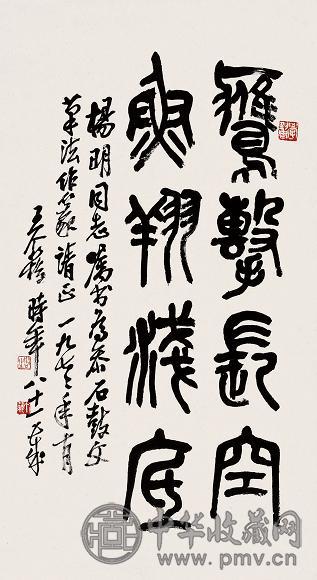 鷹擊長空
魚翔淺底
楊明同志嘱书为参石鼓文
草法作篆請正 一九七年 月
王个簃 時年八十一
中华收藏网
www.pmv.cn